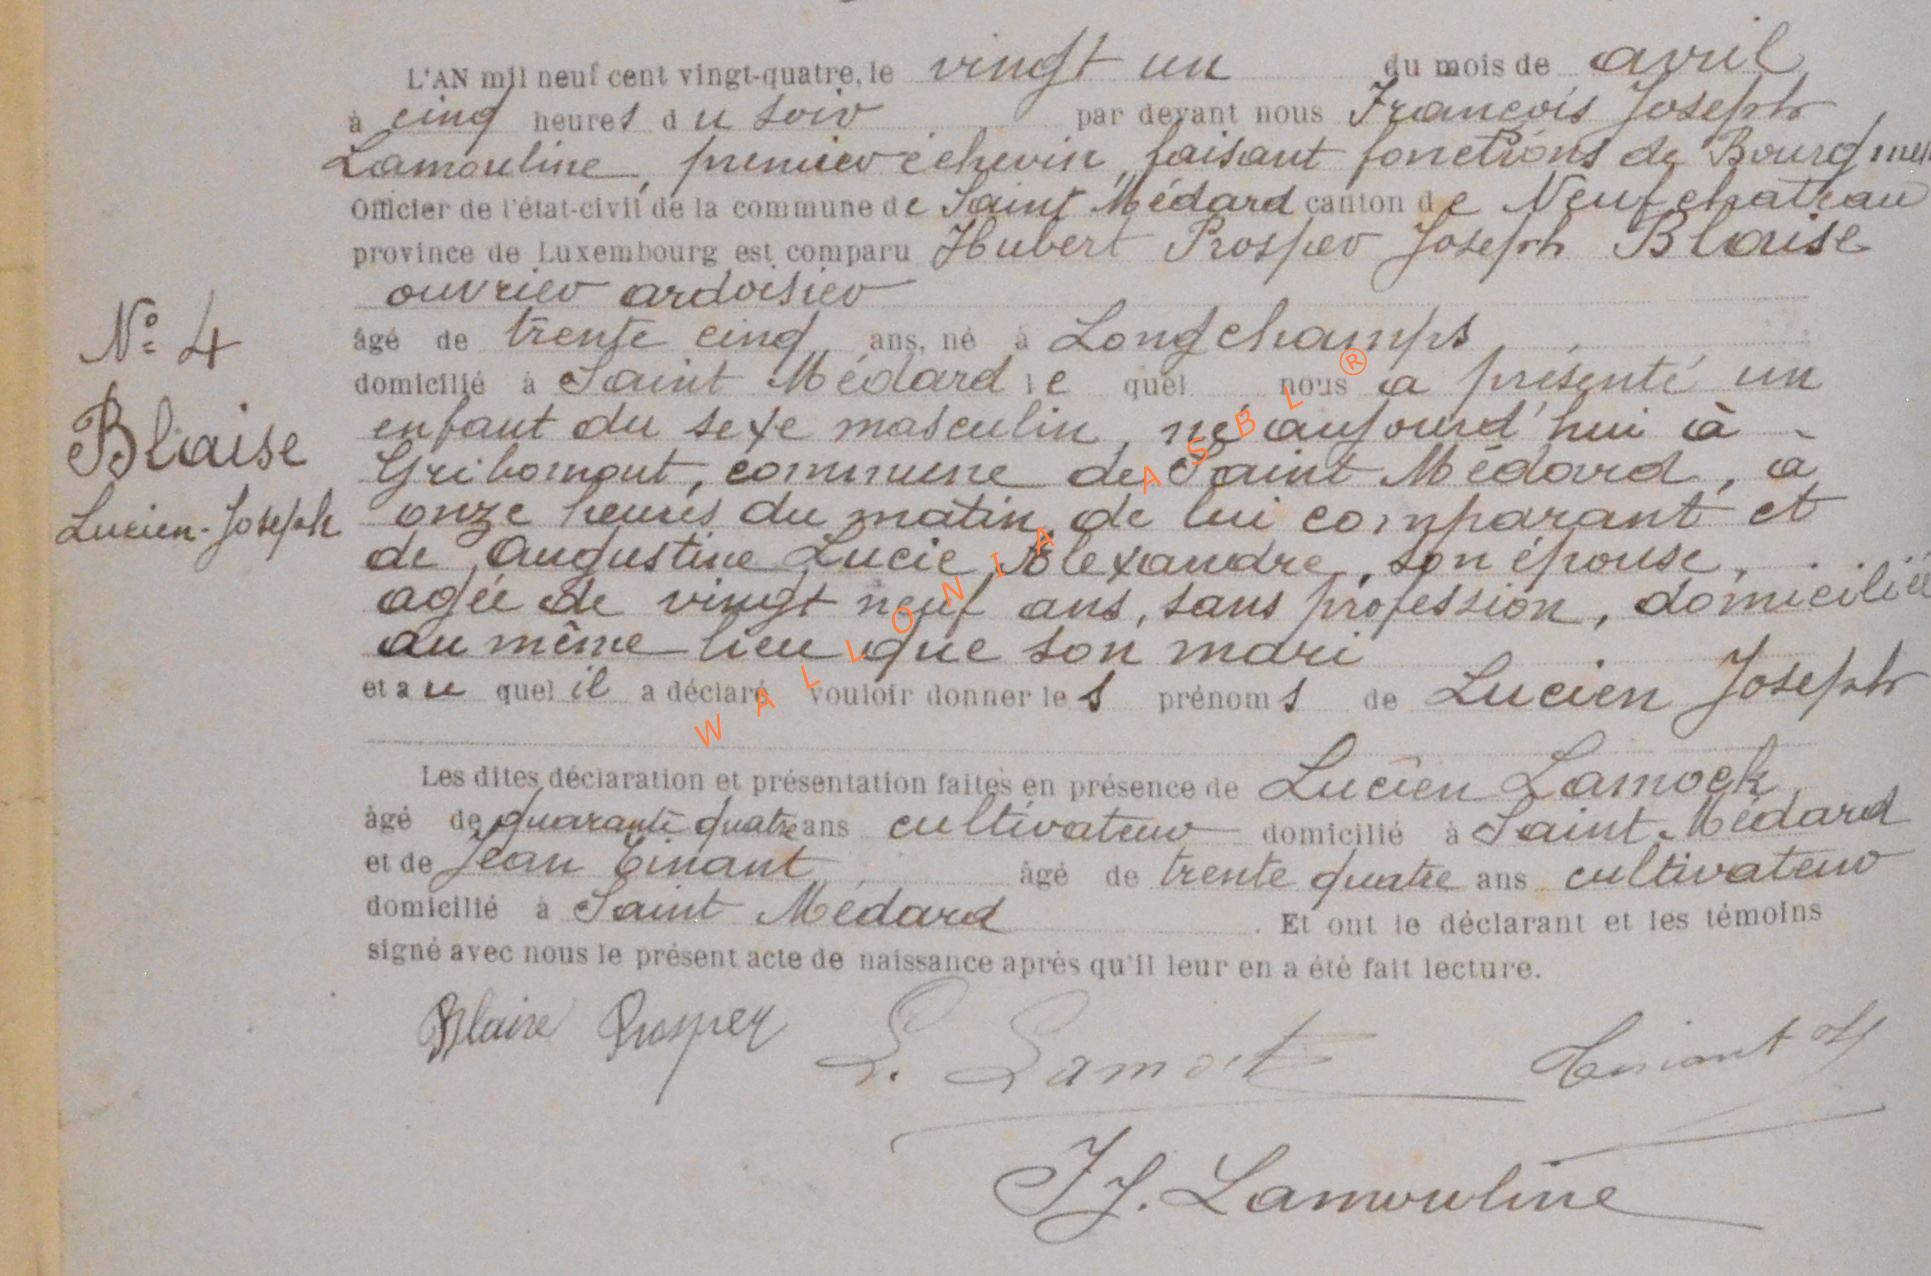 L'AN mil neuf cent vingt-quatre, le vingt un du mois de avril
à cinq heures du soir par devant nous François Joseph
Lamouline, premier échevin, faisant fonctions de
Officier de l'état-civil de la commune de Saint Médard canton de Neufchateau
province de Luxembourg est comparu Hubert Prosper Joseph Blaise
ouvrier ardoisier
âgé de trente cinq ans, né à Longchamps
domicilié à Saint Médard lequel nous a présenté un
enfant du sexe masculin, né aujourd'hui à
Gribomont, commune de Saint Médard, à
onze heures du matin, de lui comparant et
de Augustine Lucie Alexandre, son épouse,
agée de vingt neuf ans, sans profession, domiciliée
au même lieu que son mari
et au quel il a déclaré vouloir donner les prénoms de Lucien Joseph
Les dites déclaration et présentation faites en présence de Lucien Lamock
âgé de quarante quatre ans cultivateur domicilié à Saint Médard
et de Jean Tinant âgé de trente quatre ans cultivateur
domicilié à Saint Médard. Et ont le déclarant et les témoins
signé avec nous le présent acte de naissance après qu'il leur en a été fait lecture.
N° 4
Blaise
Lucien-Joseph
Blaise Prosper
L. Lamock
FJ. Lamouline
WALLONIA ASBL ®